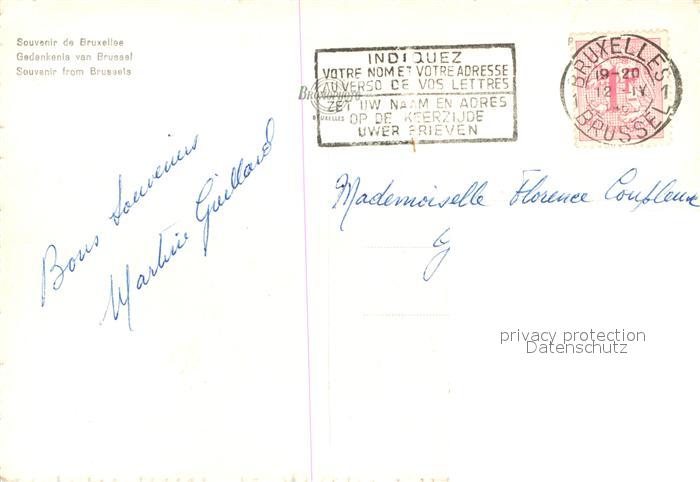 Souvenir de Bruxelles
Gedenkenis van Brussel
Souvenir from Brussels
INDIQUEZ
VOTRE NOM ET VOTRE ADRESSE
AU VERSO DE VOS LETTRES
ZET UW NAAM EN ADRES
OP DE KEERZIJDE
UWER BRIEVEN
BRUXELLES
BRUXELLES
19-20
12 IV
1 1
BRUSSEL
1F
Bons Souvenirs
Martine Guillard
Mademoiselle Florence
privacy protection
Datenschutz